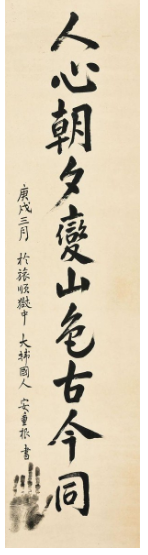 人心朝夕變山色古今同
庚戌三月 於旅順獄中 大韓國人 安重根 書